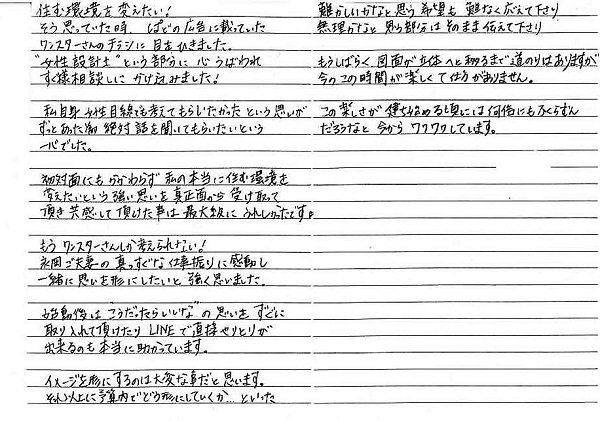 住む環境を変えたい!
そう思っていた時、ぱどの広告に載っていた
ワンスターさんのチラシに目をひきました。
"女性設計士"という部分に心うばわれ
すぐ様相談しにかけ込みました!
私自身女性目線でも考えてもらいたかったという思いが
ずっとあった為絶対話を聞いてもらいたいという
一心でした。
初対面にもかかわらず私の本当に住む環境を
変えたいという強い思いを真正面から受け取って
頂き共感して頂けた事は最大級にうれしかったです。
もうワンスターさんしか考えられない!
永田ご夫妻の真っすぐな仕事振りに感動し
一緒に思いを形にしたいと強く思いました。
始動後は"こうだったらいいな"の思いをすぐに
取り入れて頂けたりLINEで直接やりとりが
出来るのも本当に助かっています。
イメージを形にするのは大変な事だと思います。
それ以上に予算内でどう形にしていくか…といった
難しいかなと思う希望も難なく応えて下さり
無理かなと思う部分はそのまま伝えて下さり
もうしばらく図面が立体へと到るまで道のりはありますが
今のこの時間が楽しくて仕方がありません。
この楽しさが建ち始める頃には何倍にもふくらむん
だろうなと今からワクワクしています。